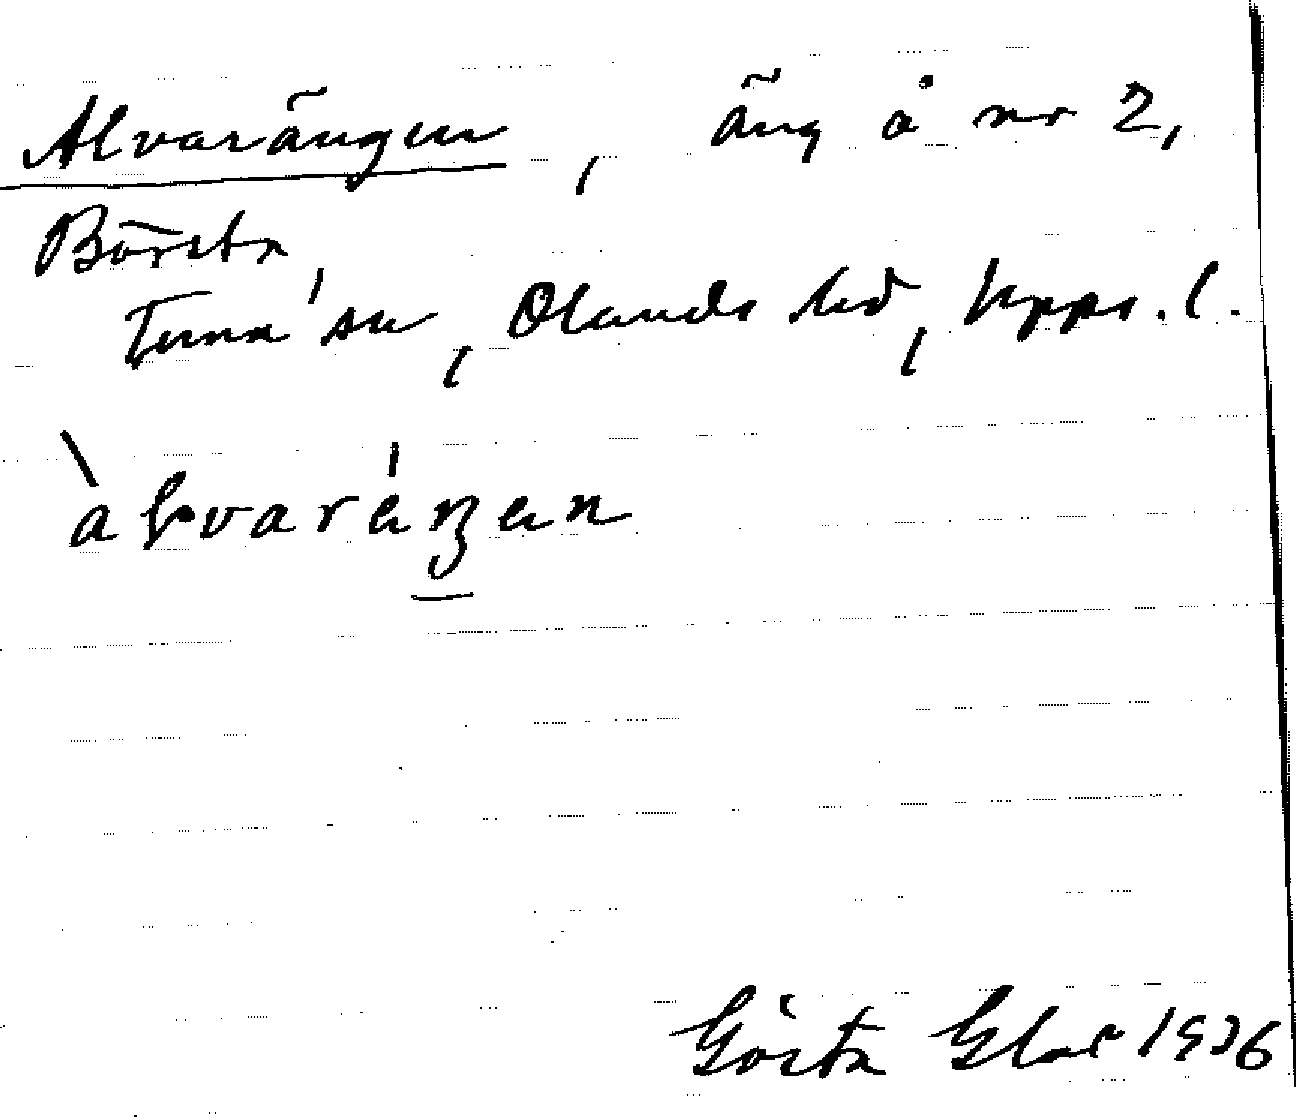 Alvarängen, äng å nr 2,
Börsta
Tuna sn, Olands hd, Upps. l.
àƚvaráŋen
Gösta
1936